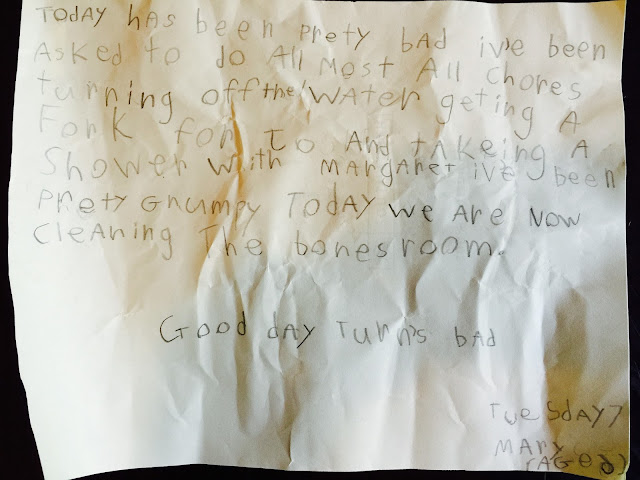 TODAY hAS been pretty bAd iv'e been
ASKed to do All most All chores
turning off the WAter geting A
Fork for To And tAKeing A
Shower with mArgAret iv'e been
pretty Grumpy TodAy we Are Now
CleAning The bones room.
Good dAy Turn's bAd
Tuesday 7
MARY
(AGe